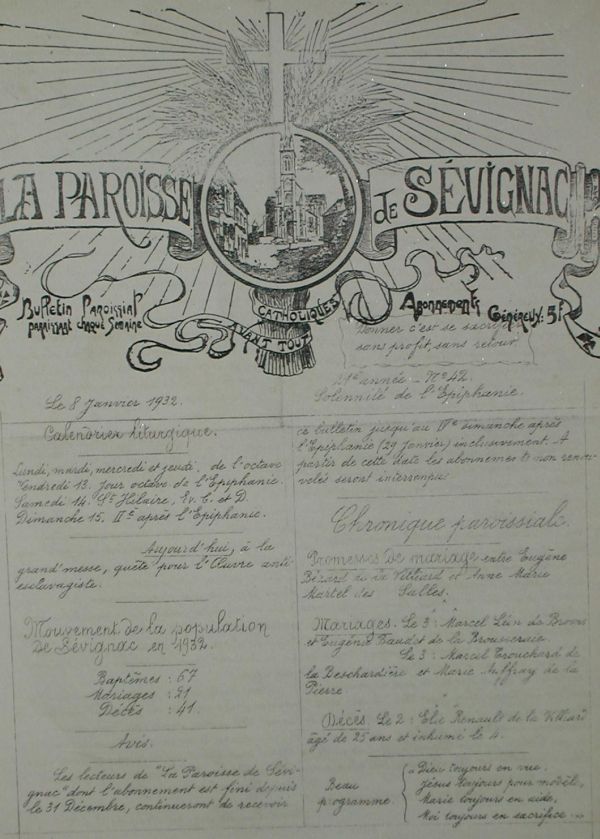 LA PAROISSE
de SÉVIGNAC
Bulletin Paroissial
paraissant chaque Semaine
CATHOLIQUES
AVANT TOUT
Abonnements
Généreux: 5f
Donner c'est se
sans profit, sans retour
21e année - No 42.
Solennité de l'Epiphanie.
Le 8 Janvier 1932.
Calendrier liturgique.
Lundi, mardi, mercredi et jeudi, de l'octave
Vendredi 13. Jour octave de l'Epiphanie.
Samedi 14. St Hilaire, Ev. C. et D.
Dimanche 15. IIe après l'Epiphanie.
Aujourd'hui, à la
grand'messe, quête pour l'Œuvre anti-
esclavagiste.
Mouvement de la population
de Sévignac en 1932.
Baptêmes : 67
Mariages : 21
Décès : 41.
Avis.
Les lecteurs de "La Paroisse de Sévi-
gnac" dont l'abonnement est fini depuis
le 31 Décembre, continueront de recevoir
ce bulletin jusqu'au IVe dimanche après
l'Epiphanie (29 Janvier) inclusivement. A
partir de cette date les abonnements non renou-
velés seront interrompus
Chronique paroissiale.
Promesses de mariage entre Eugène
Bérard de la Villiard et Anne Marie
Martel des Salles.
Mariages. Le 3: Marcel Léin de Broons
et Eugénie Baudet de la Brousserare
Le 3: Marcel Crouchard de
la Deschardière et Marie Auffray de la
Pierre
Décès. Le 2: Elie Renault de la Villiard
âgé de 25 ans et inhumé le 4.
Beau
programme.
"Dieu toujours en vue,
Jésus toujours pour modèle,
Marie toujours en aide,
Moi toujours en sacrifice...